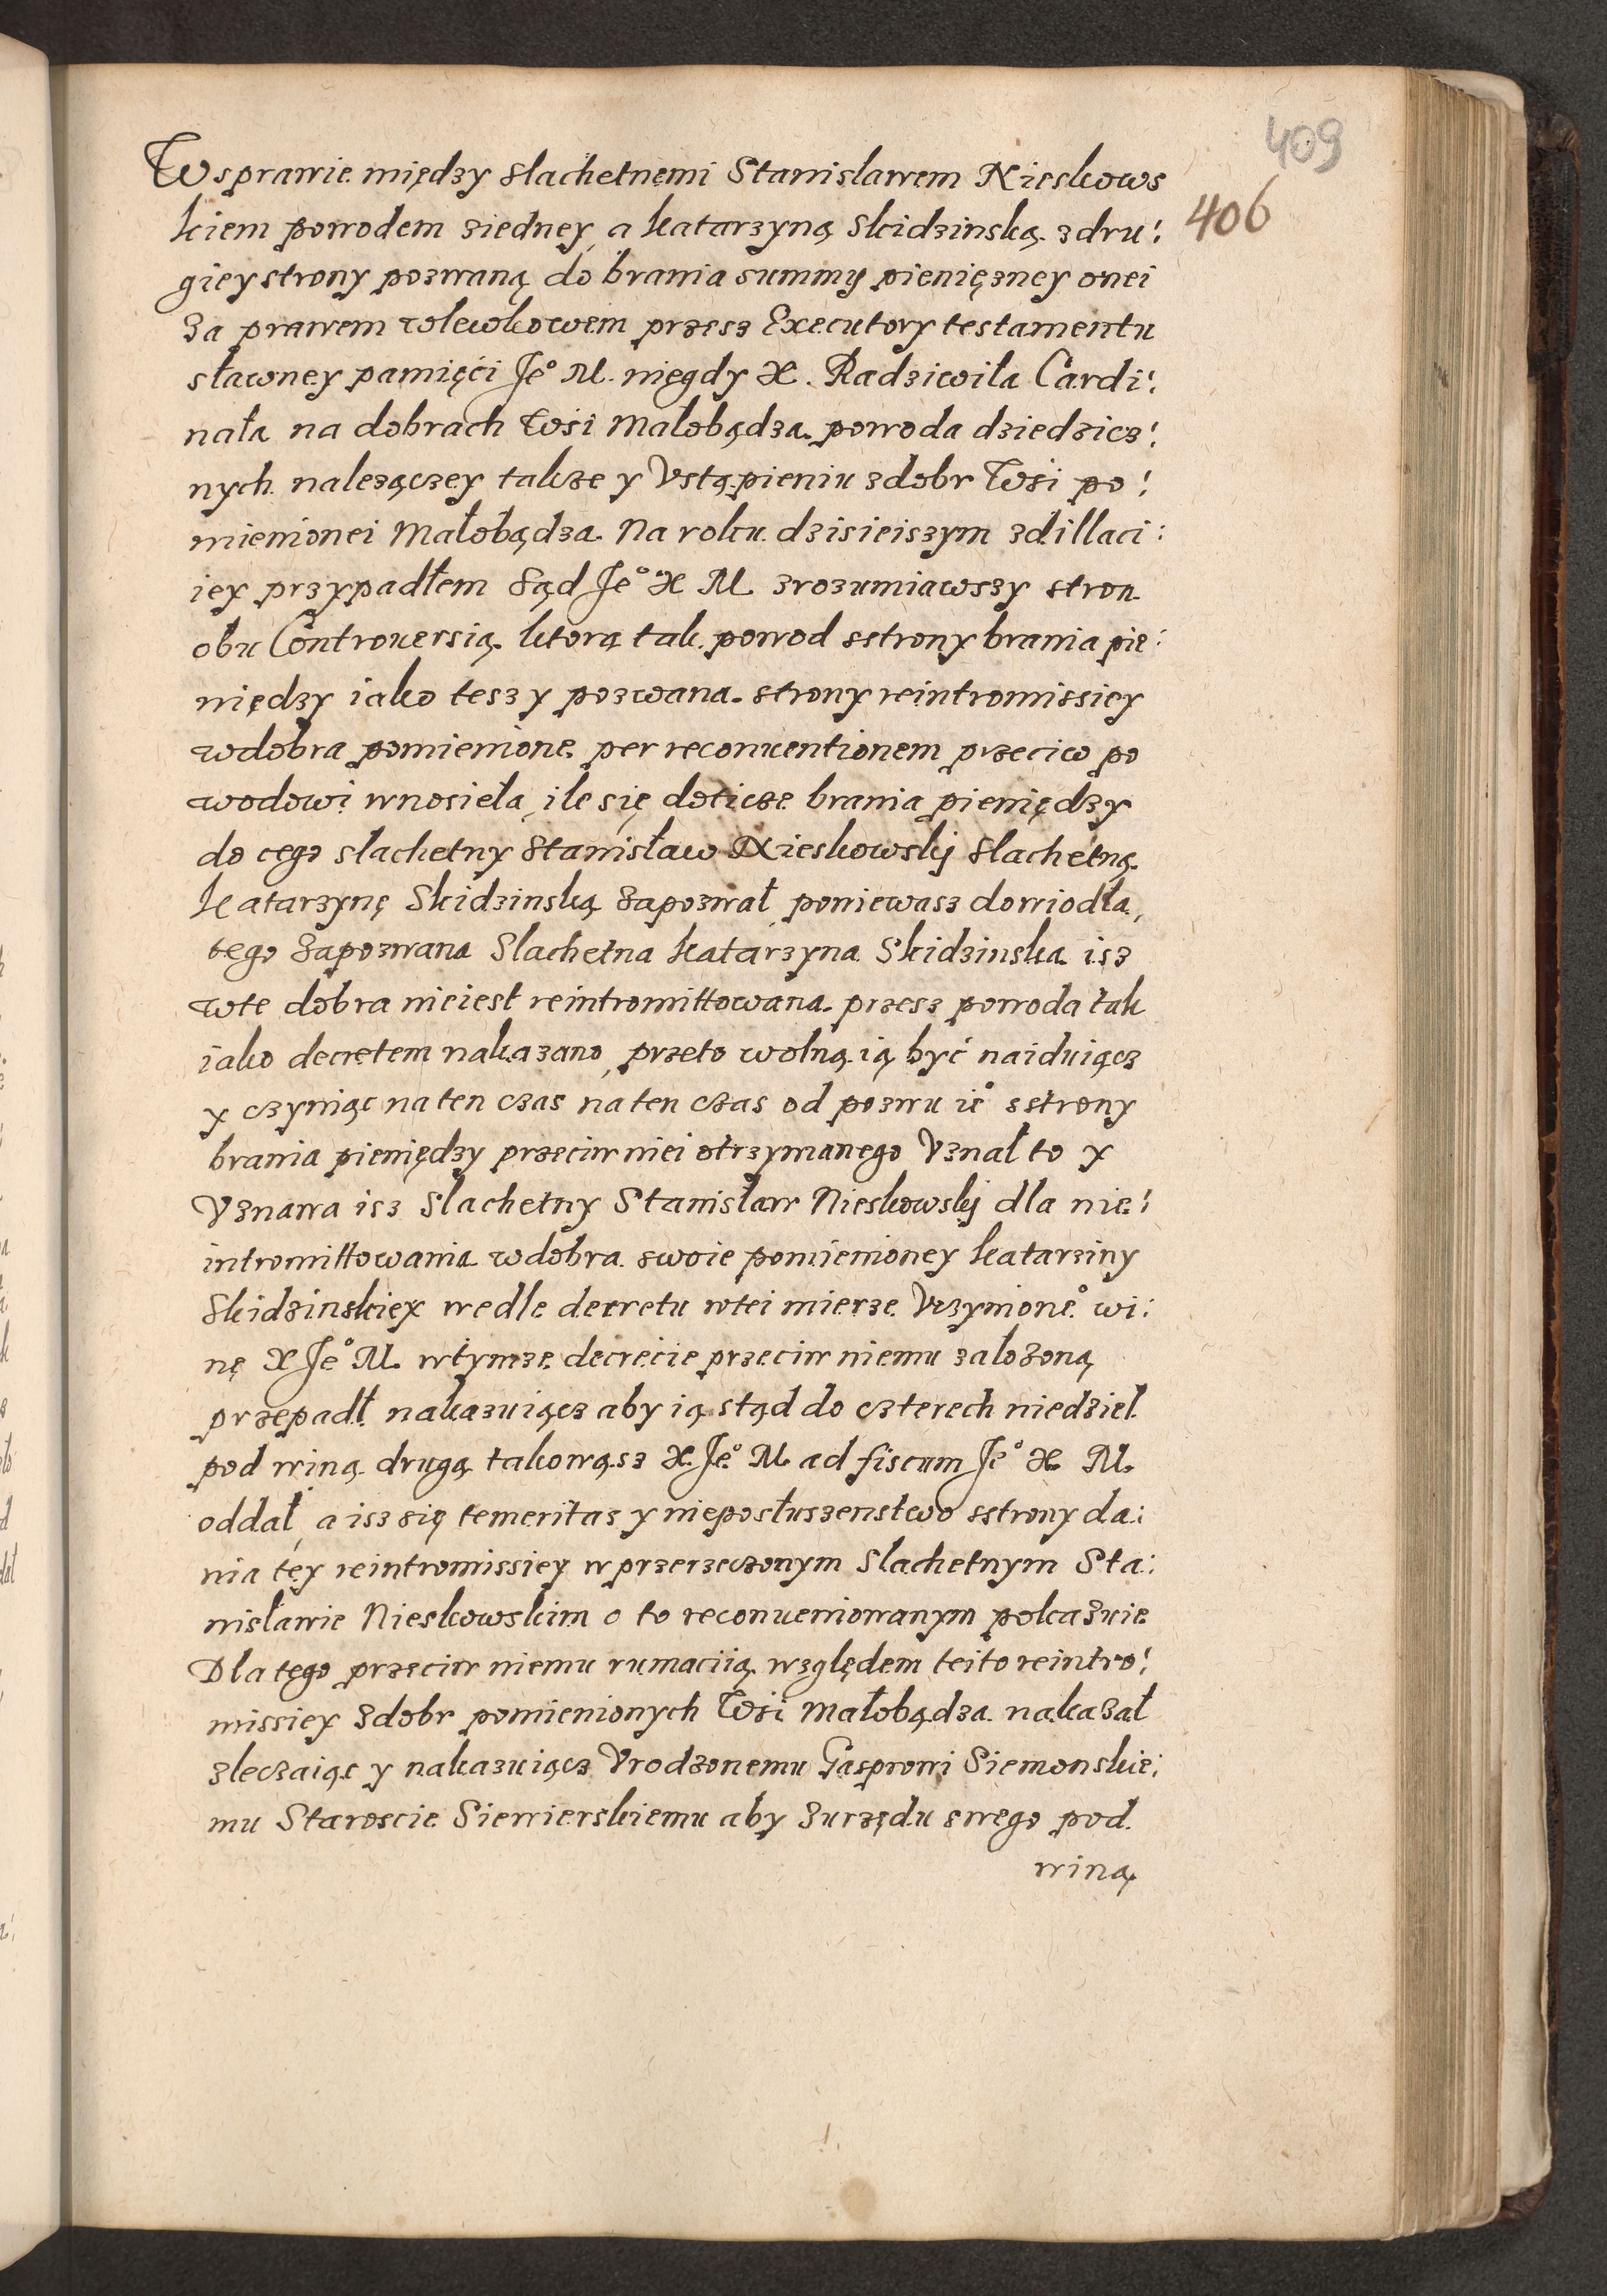 409
W sprawie między slachetnemi Stanisławem Nieskows
kiem powodem ziedney, a Katarzyną Skidzinską zdru:
giey strony pozwaną do brania summy pieniężney onei
Za prawem wlewkowem przesz Executory testamentu
sławney pamięći Je° M. niegdy X. Radziwiła Cardi:
nała na dobrach Wsi Małobądza powoda dziedzicz:
nych nalezączey takze y Vstąpieniu zdobr Wsi po:
mienionei Małobądza. Na roku dzisieiszym zdillaci:
iey przypadłem Sąd Je° X M zrozumiawszy stron
obu Controuersią, ktorą tak powod sstrony brania pie:
niędzy iako tesz y pozwana strony reintromissiey
wdobra pomienione per reconuentionem przeciw po
wodowi wnosieła, ile się doticze brania pieniędzy
do cego slachetny Stanisław Nieskowskij Slachetną
Katarzynę Skidzinską Zapozwał, poniewasz dowiodła,
tego Zapozwana Slachetna Katarzyna Skidzinska isz
wte dobra nieiest reintromittowana przesz powoda tak
iako decretem nakazano, przeto wolną ią być naiduiącz
y czyniąc na ten czas na ten czas od pozwu ie° sstrony
brania pieniędzy przeciw niei otrzymanego Vznał to y
Vznawa isz Slachetny Stanisław Nieskowskij dla nie:
intromittowania wdobra swoie pomienioney Katarziny
Skidzinskiey wedle decretu wtei mierze Vczynione° wi:
nę X Je° M. wtymze decrecie przeciw niemu założoną
przepadł nakazuiącz aby ią stąd do czterech niedziel
pod winą drugą takowąsz X. Je° M. ad fiscum Je° X. M.
oddał, a isz się temeritas y nieposłuszenstwo sstrony da:
nia tey reintromissiey w przerzeczonym Slachetnym Sta:
nisławie Nieskowskim o to reconueniowanym pokazuie
Dla tego przeciw niemu rumaciią względem teito reintro:
missiey zdobr pomienionych Wsi Małobądza nakazał
zleczaiąc y nakazuiącz Vrodzonemu Gasprowi Siemonskie:
mu Staroscie Siewierskiemu aby zurzędu swego pod
winą
406